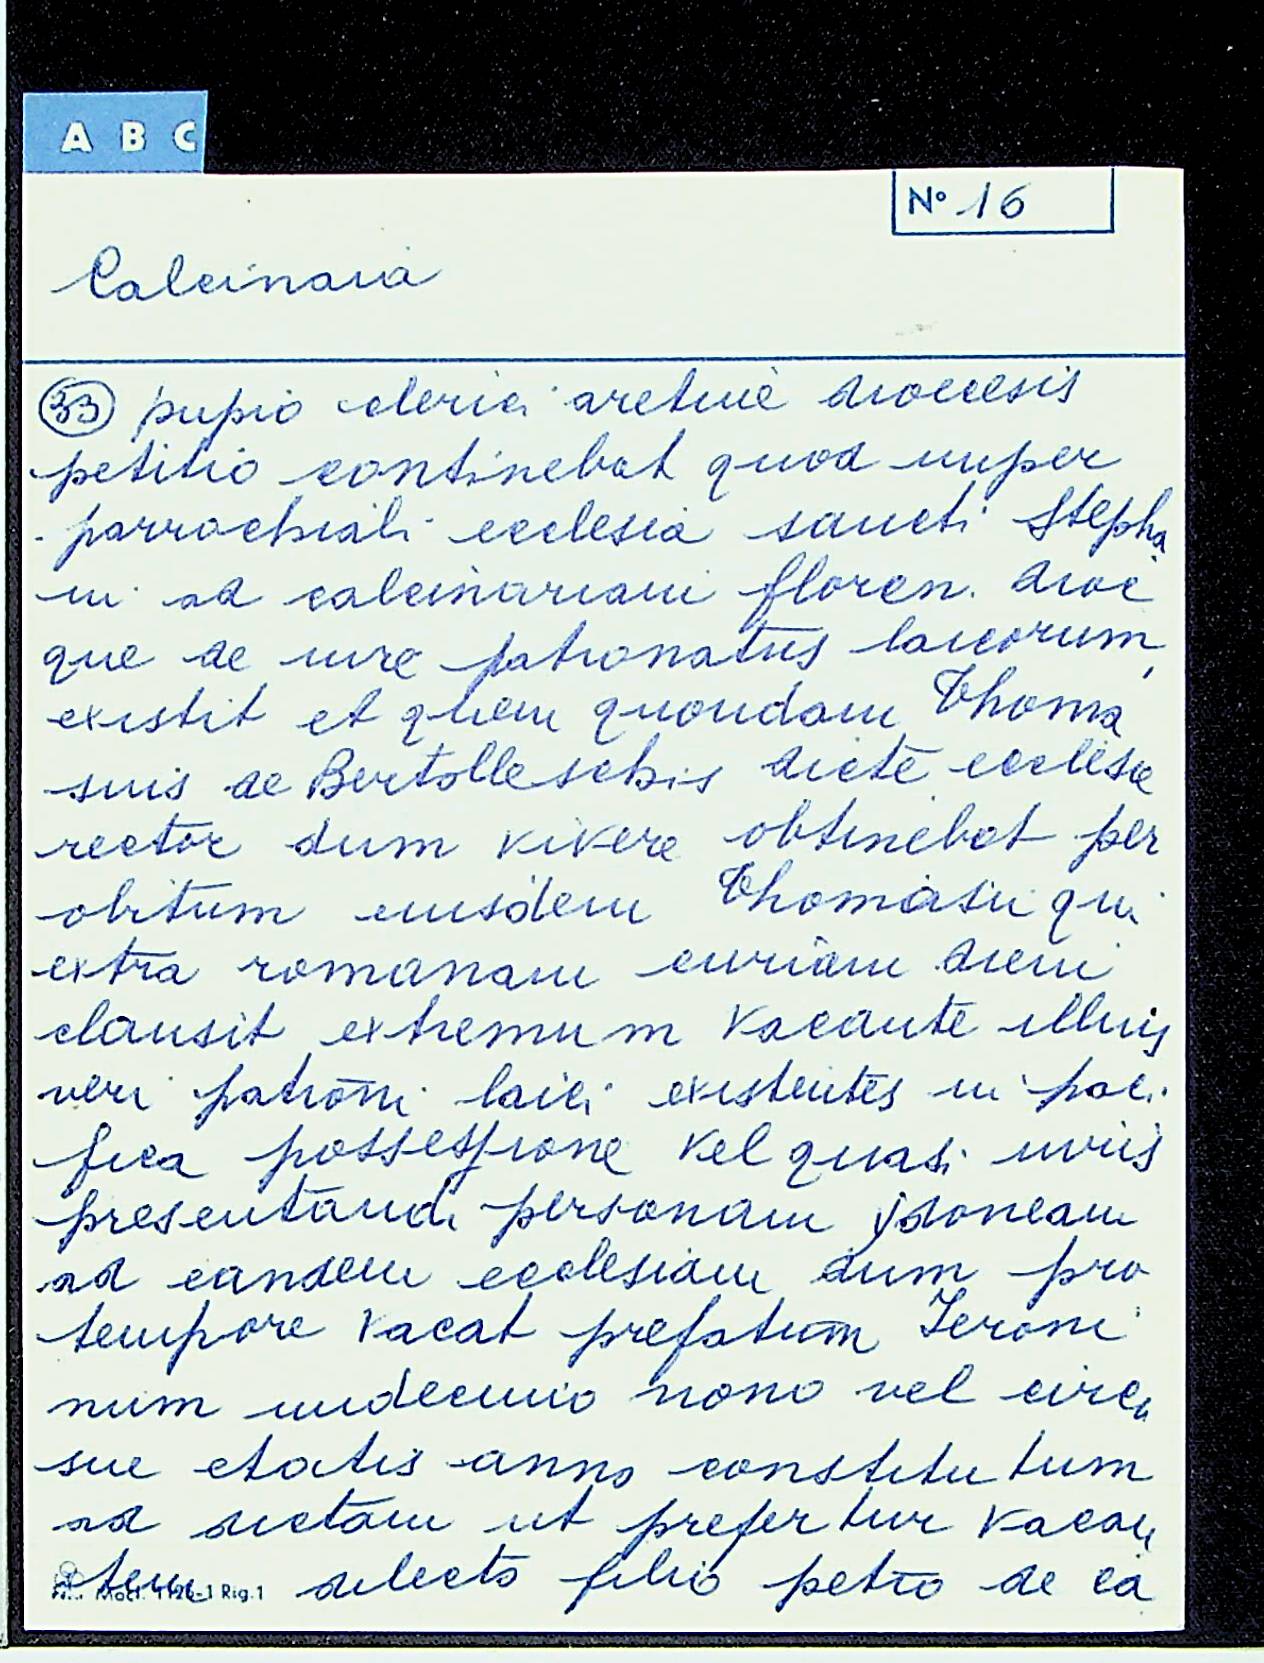 A B C
Nº 16
Calcinaia
33 pupio clerici aretine diocesis
petitio continebat quod nuper
parrochiali ecclesia sancti Stepha
ni ad calcinariam floren. dioc
que de iure patronatus laicorum
existit et quem quondam Thoma
suis de Bertolleschis dicte ecclesie
rector dum vivere obtinebat per
obitum eiusdem Thomasii qui
extra romanam curiam diem
clausit extremum vacante illius
veri patroni laici existentes in paci
fica possessione vel quasi iuris
presentandi personam ydoneam
ad eandem ecclesiam dum pro
tempore vacat prefatum Ieroni
num undecimo nono vel circa
sue etatis anno constitutum
ad dictam ut prefertur vacan
tem dilecto filio petro de ca
Mod. 1126-1 Rig. 1